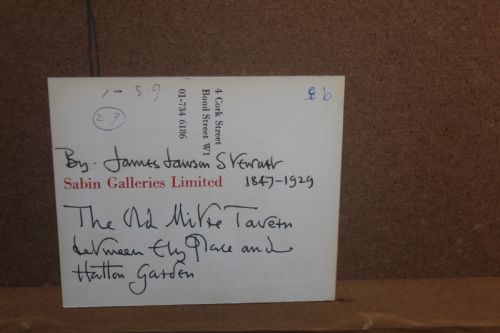 4 Cork Street
Bond Street W1
01-734 6186
By. James Lawson Stewart
Sabin Galleries Limited 1847-1929
The Old Mitre Tavern
between Ely Place and
Hatton Garden